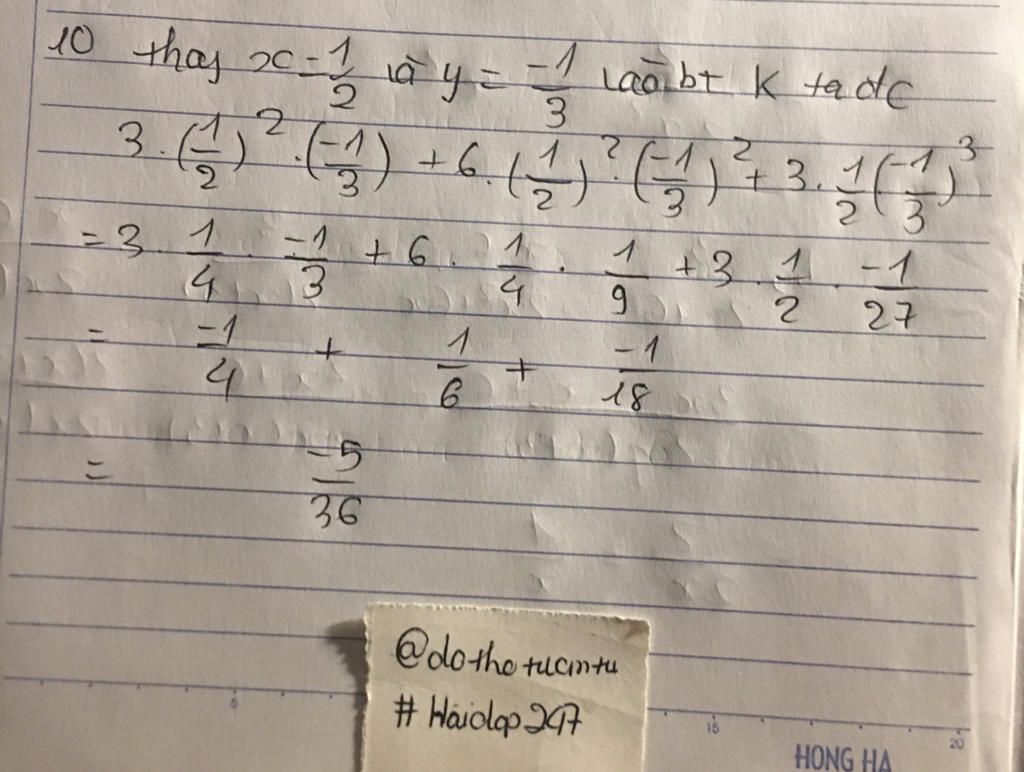 10 thay x = 1/2 và y = -1/3 vào bt K ta dc
3.(1/2)².(-1/3) + 6.(1/2)².(-1/3)² + 3.1/2(-1/3)³
= 3 1/4 . -1/3 + 6 . 1/4 . 1/9 + 3 . 1/2 . -1/27
= -1/4 + 1/6 + -1/18
= -5/36
@dothotucintu
# Hoidap247
5 15 20
HONG HA